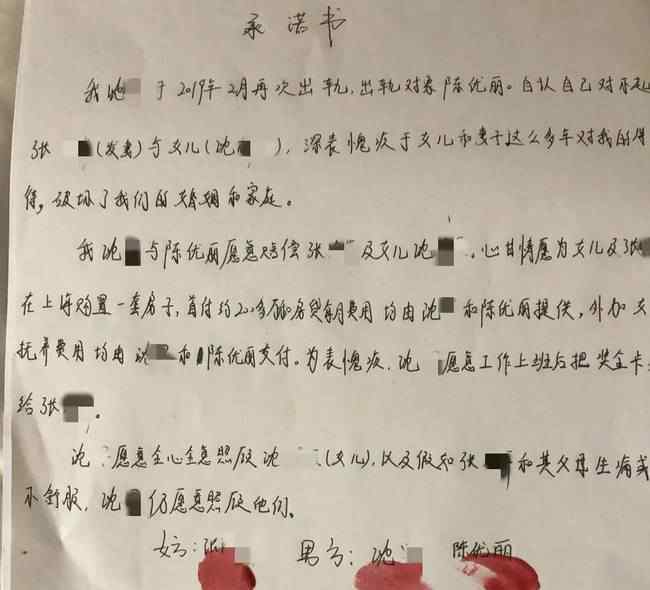 承诺书
我沈 于2019年2月再次出轨,出轨对象陈优丽。自认自己对不起
张 (发妻)与女儿(沈 ),深表愧疚于女儿和妻子这么多年对我的
待,破坏了我们的婚姻和家庭。
我沈 与陈优丽愿意赔偿张 及女儿沈 。心甘情愿为女儿及张
在上海购置一套房子,首付约200多万和房贷每月费用均由沈 和陈优丽提供,外加女
抚养费用均由沈 和陈优丽支付。为表愧疚,沈 愿意工作上班后把奖金卡
给张 。
沈 愿意全心全意照顾沈 (女儿),以及假如张 和其父母生病或
不舒服,沈 仍愿意照顾他们。
女方:张 男方:沈 陈优丽